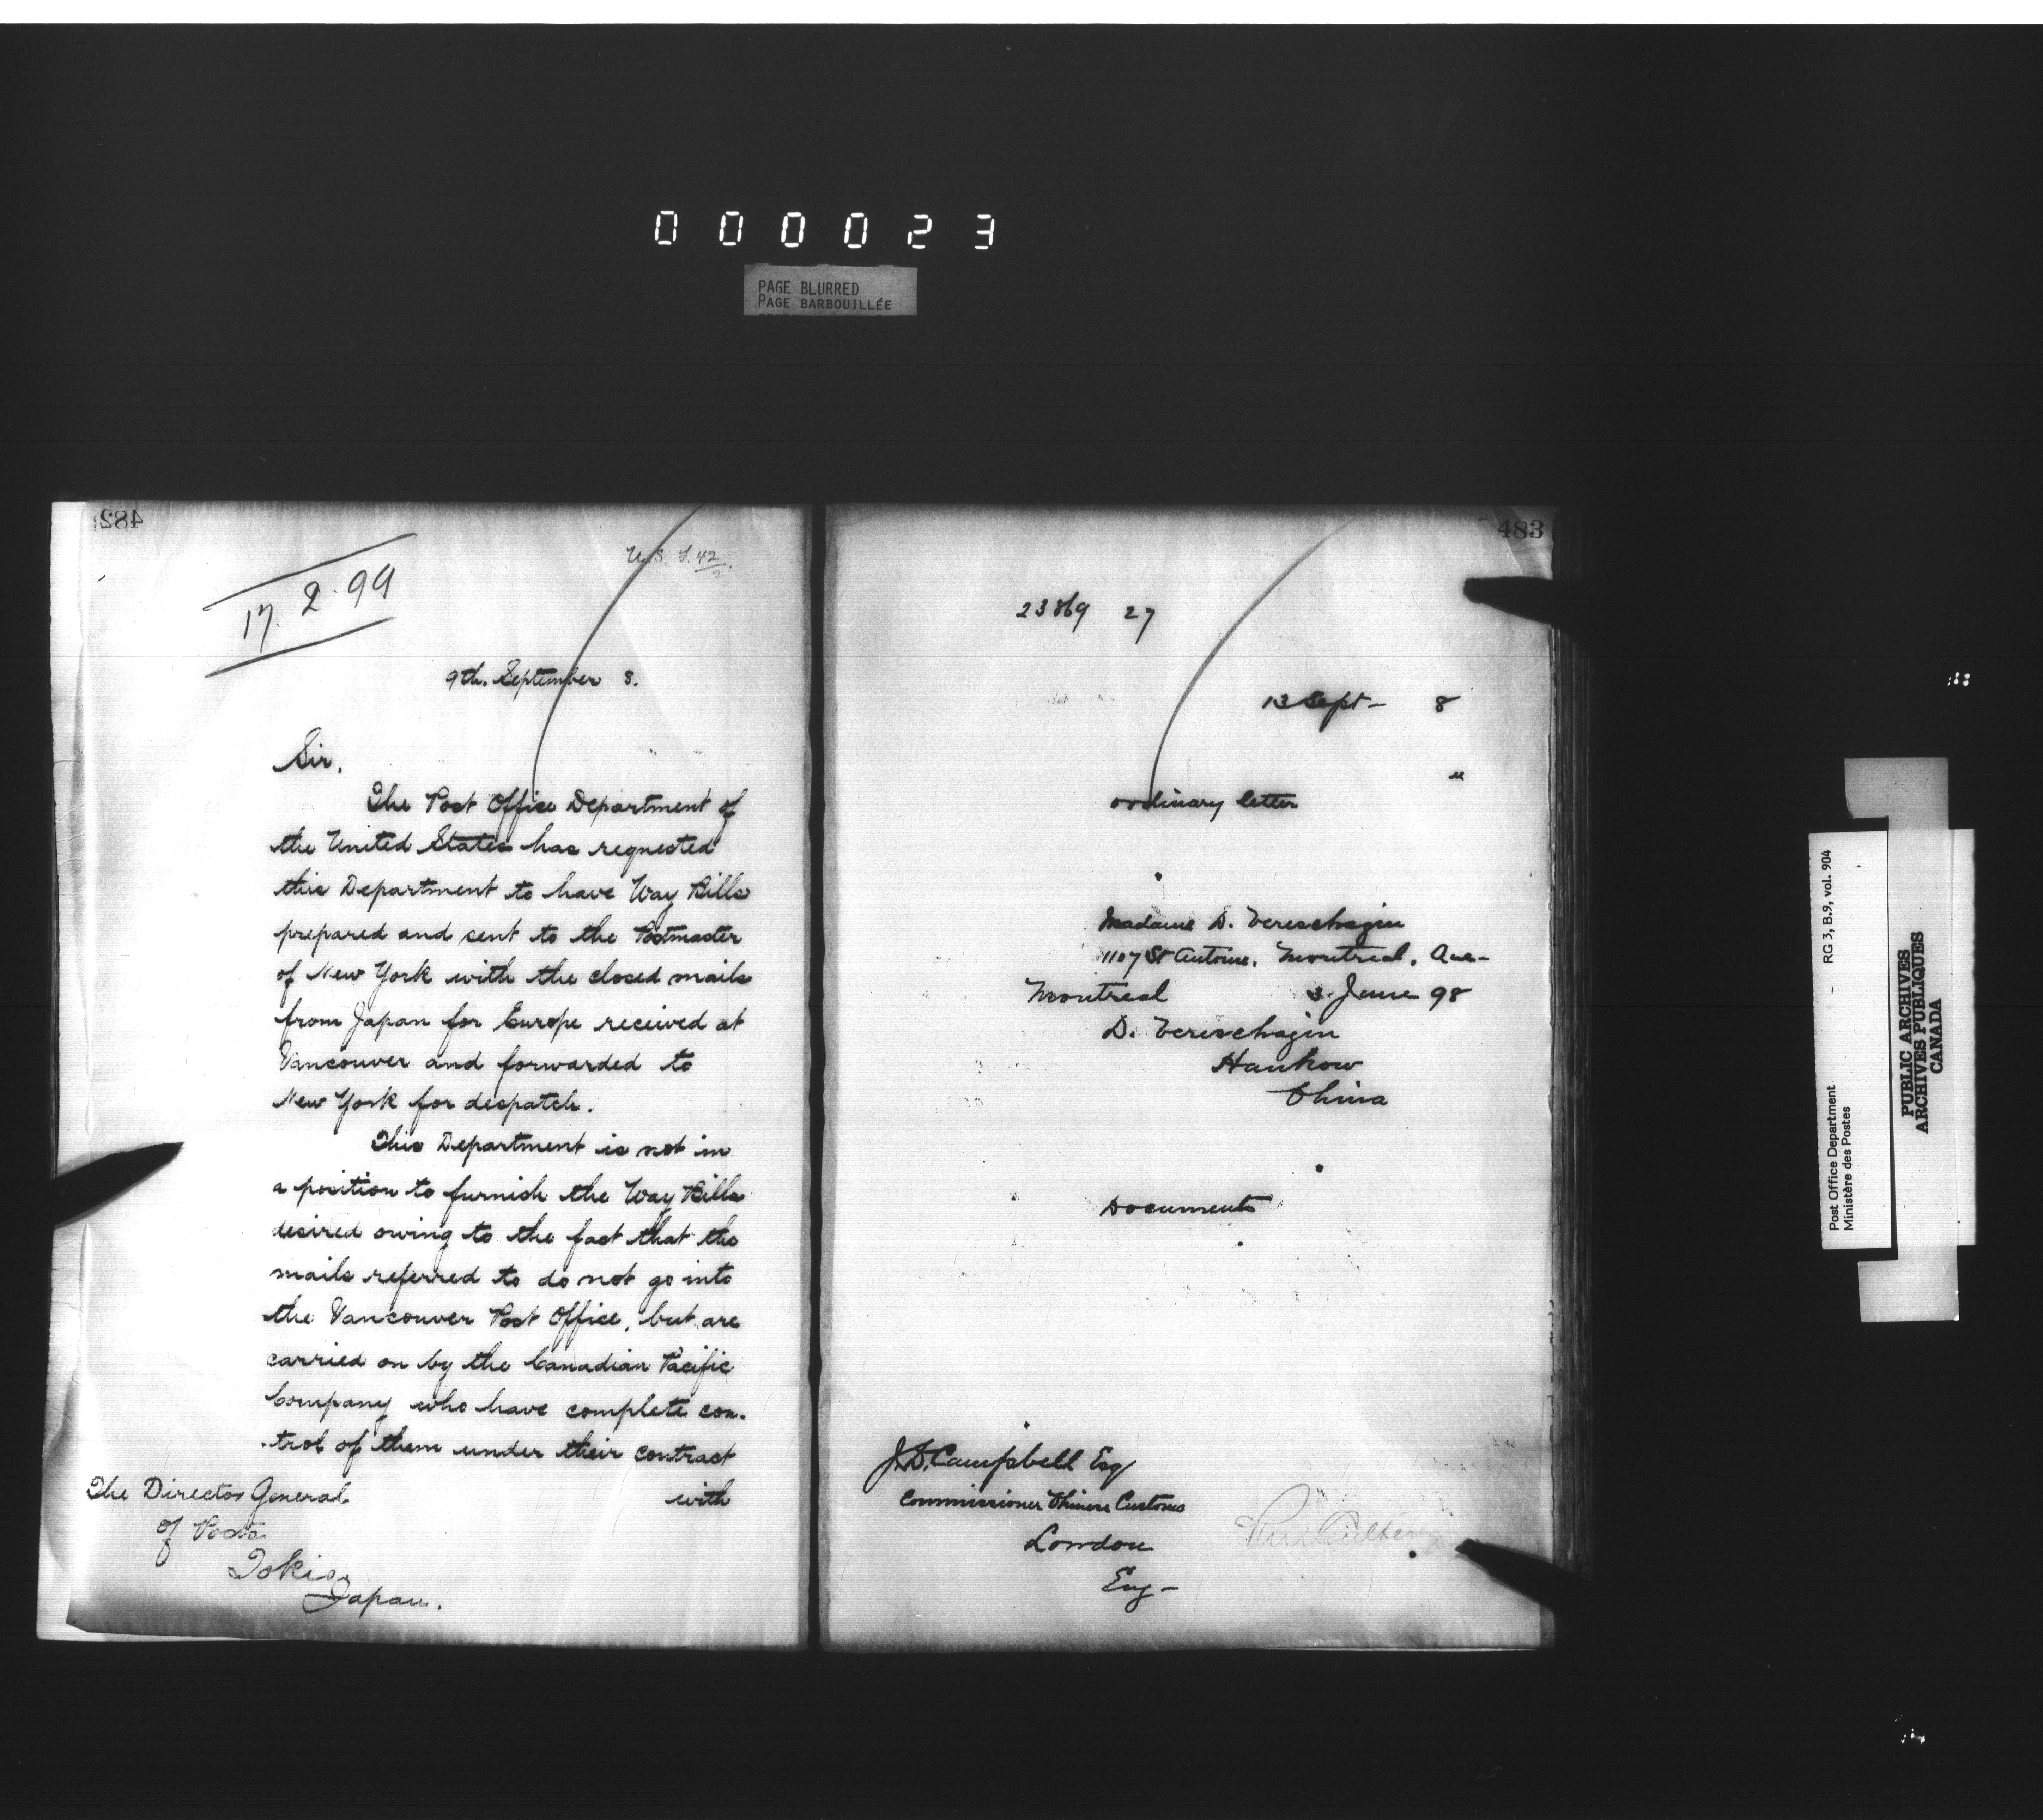 000023
PAGE BLURRED
PAGE BARBOUILLÉE
482
U.S. F. 42/2.
17. 2. 99
9th. September 8.
Sir,
The Post Office Department of
the United States has requested
this Department to have Way Bills
prepared and sent to the Postmaster
of New York with the closed mails
from Japan for Europe received at
Vancouver and forwarded to
New York for despatch.
This Department is not in
a position to furnish the Way Bills
desired owing to the fact that the
mails referred to do not go into
the Vancouver Post Office, but are
carried on by the Canadian Pacific
Company who have complete con-
-trol of them under their contract
with
The Director General
of Posts
Tokio
Japan.
483
23869 27
13 Sept - 8
"
ordinary letter
Madame D. Vereschagin
1107 St Antoine. Montreal. Que-
Montreal 3 June 98
D. Vereschagin
Hankow
China
Documents
J.D. Campbell Esq
Commissioner Chinese Customs
London
Eng -
RG 3, B.9, vol. 904
Post Office Department
Ministère des Postes
PUBLIC ARCHIVES
ARCHIVES PUBLIQUES
CANADA